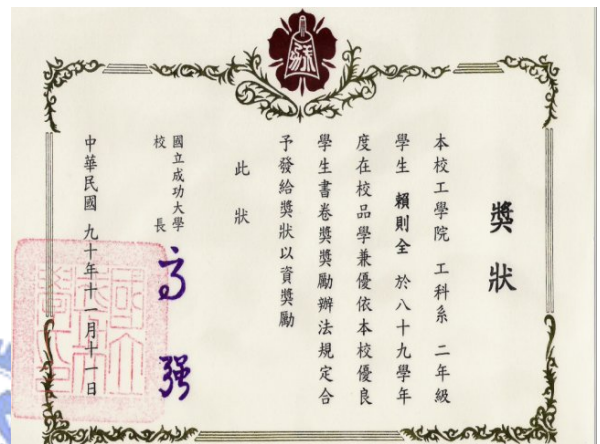 獎狀
本校工學院 工科系 二年級
學生 賴則全 於八十九學年
度在校品學兼優依本校優良
學生書卷獎獎勵辦法規定合
予發給獎狀以資獎勵
此狀
國立成功大學
校長 高强
中華民國 九十年十一月十一日